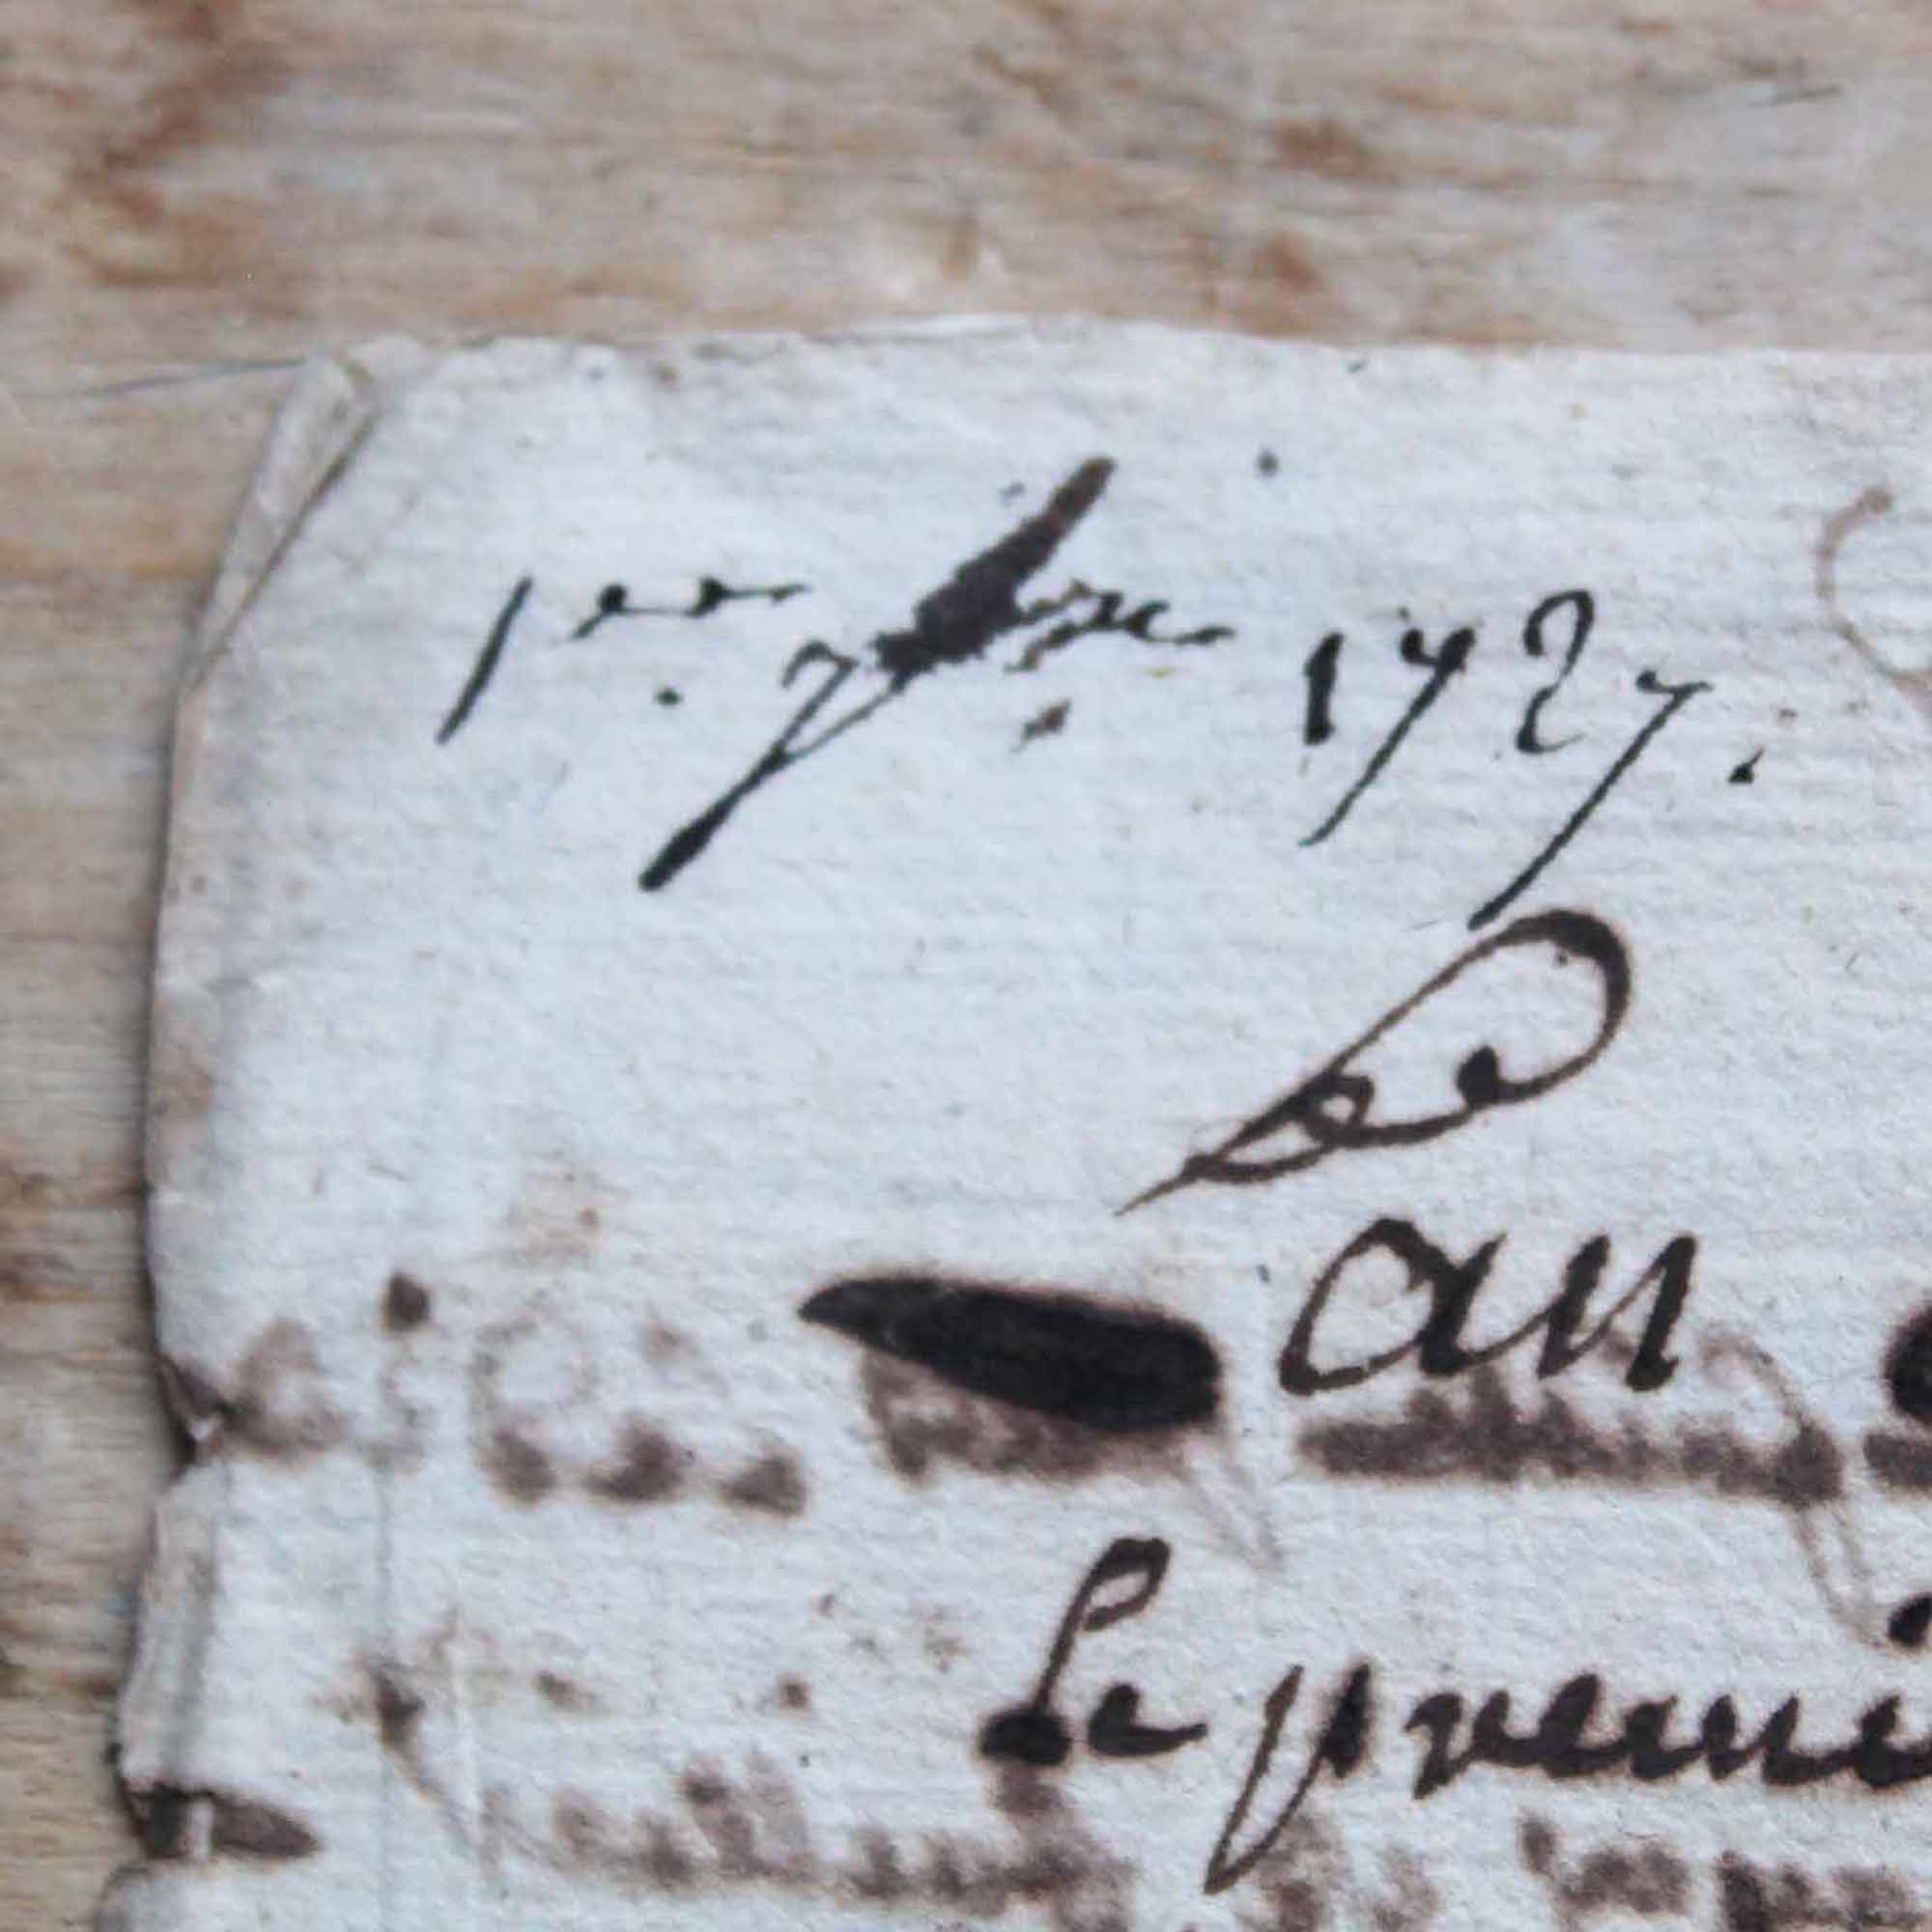 1er. 7bre 1727.
an
Le premi